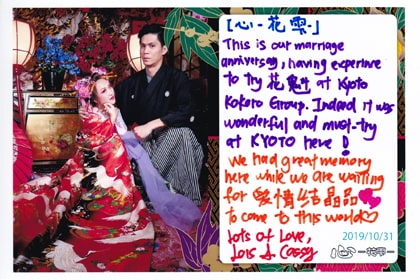 [心-花雫-]
This is our marriage
anniversay, having experience
to try 花魁 at Kyoto
Kokoro Group. Indeed it was
wonderful and must-try
at KYOTO here!
We had great memory
here while we are waiting
for 爱情结晶品
to come to this world♡
Lots of Love,
Lois & Cassy
2019/10/31
心 -花雫-